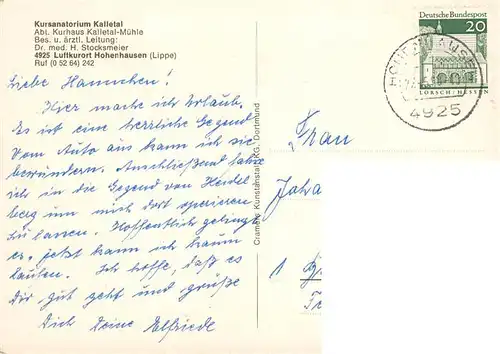 Kursanatorium Kalletal
Abt. Kurhaus Kalletal-Mühle
Bes. u. ärztl. Leitung:
Dr. med. H. Stocksmeier
4925 Luftkurort Hohenhausen (Lippe)
Ruf (0 52 64) 242
Liebe Hannchen!
Hier mache ich Urlaub.
Es ist eine herrliche Gegend
Vom Auto aus kann ich sie
bewundern. Anschließend fahre
ich in die Gegend von Heidel
berg um mich dort operieren
zu lassen. Hoffentlich gelingt
es, jetzt kann ich kaum
laufen. Ich hoffe, daß es
Dir gut geht und grüße
Dich Deine Elfriede
Cramers Kunstanstalt KG., Dortmund
Deutsche Bundespost
20
LORSCH/HESSEN
HOHENHAUSEN
4925
Frau
Joha
1